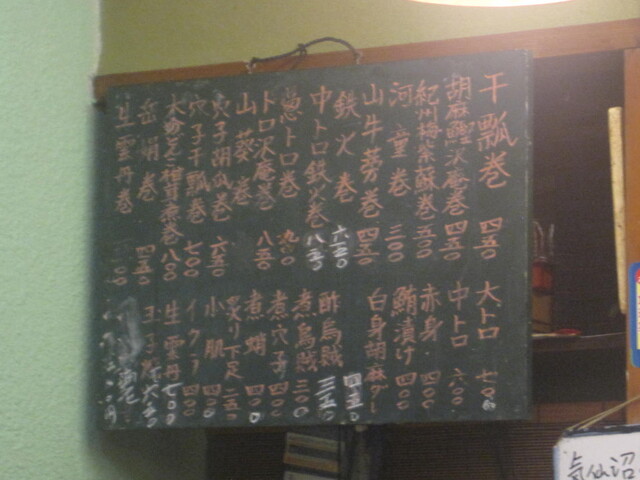 干瓢巻 四五〇
胡麻醤沢庵巻 四五〇
紀州梅紫蘇巻 五〇〇
河童巻 三〇〇
山牛蒡巻 四五〇
鉄火巻 六五〇
中トロ鉄火巻 八五〇
葱トロ巻 九〇〇
トロ沢庵巻 八五〇
山葵巻
穴子胡瓜巻 六五〇
穴子干瓢巻 七〇〇
巻 八〇〇
巻 四五〇
生雲丹巻
大トロ 七〇〇
中トロ 六〇〇
赤身 四〇〇
鮪漬け 四〇〇
白身胡麻ダレ 四五〇
酢烏賊 三五〇
煮烏賊 三〇〇
煮穴子 四〇〇
煮蛸 四〇〇
炙り下足 二五〇
小肌 四〇〇
イクラ 四〇〇
生雲丹 七〇〇
玉子
気仙沼